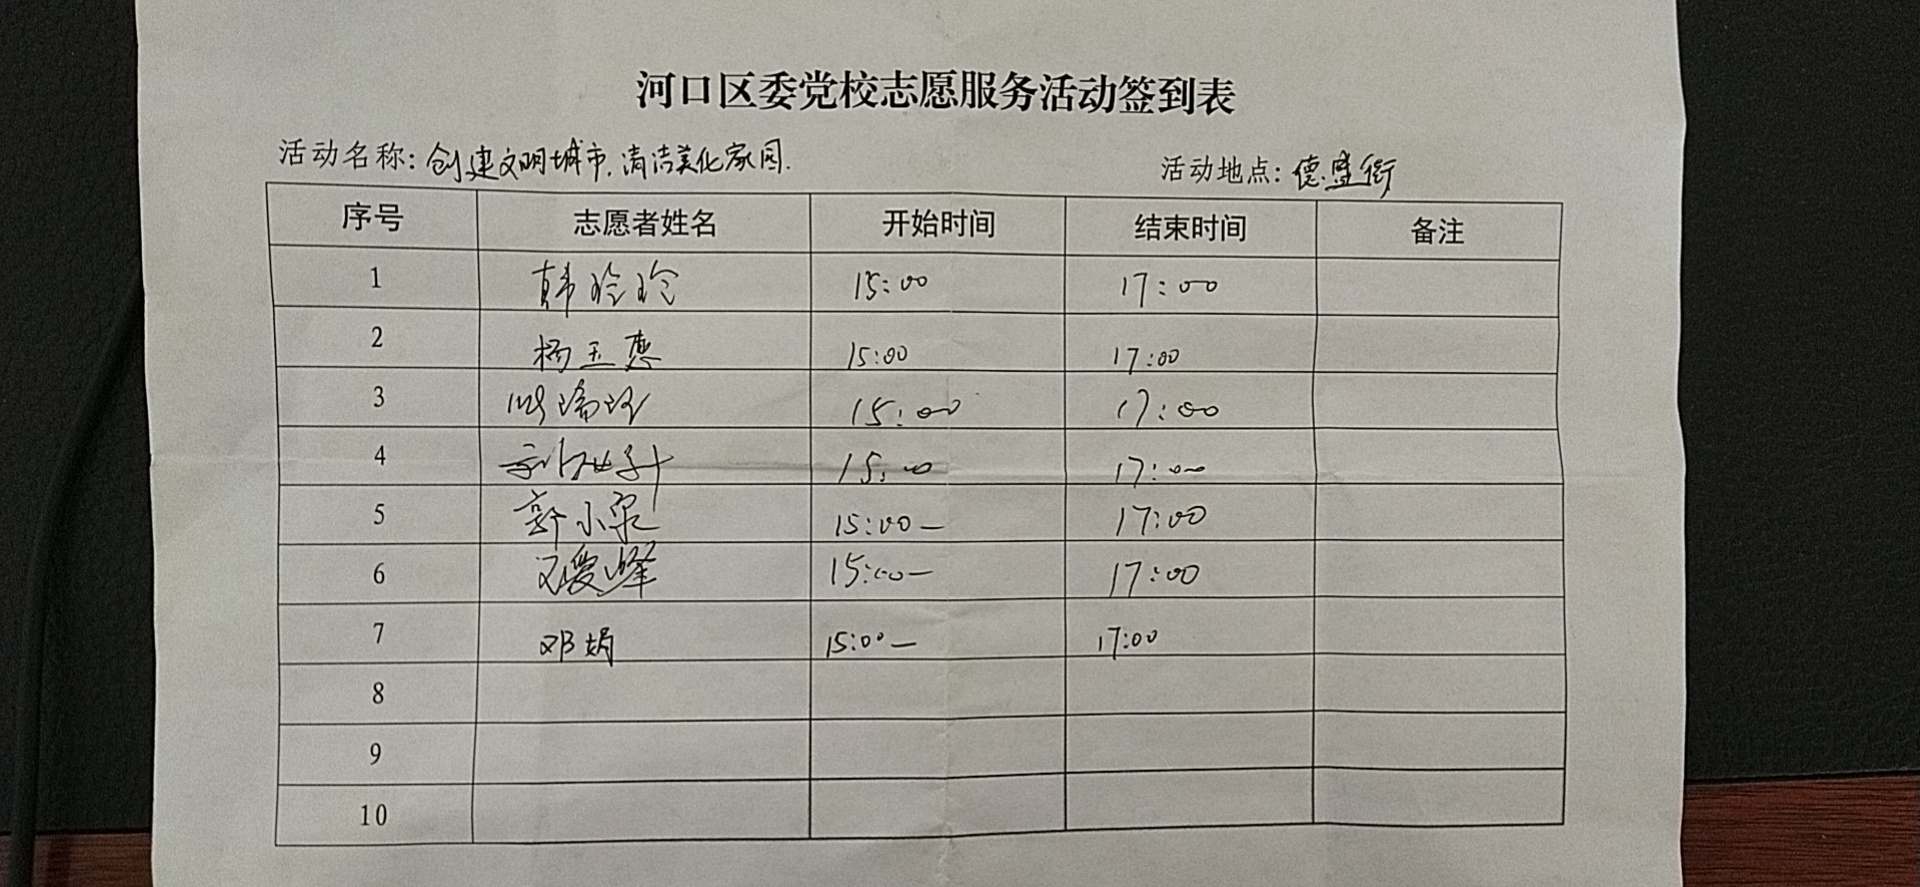 河口区委党校志愿服务活动签到表
活动名称：创建文明城市，清洁美化家园. 活动地点：德盛街
序号 志愿者姓名 开始时间 结束时间 备注
1 韩玲玲 15:00 17:00
2 杨玉慧 15:00 17:00
3 15:00 17:00
4 15:00 17:00
5 郭小泉 15:00— 17:00
6 15:00— 17:00
7 邓娟 15:00— 17:00
8
9
10